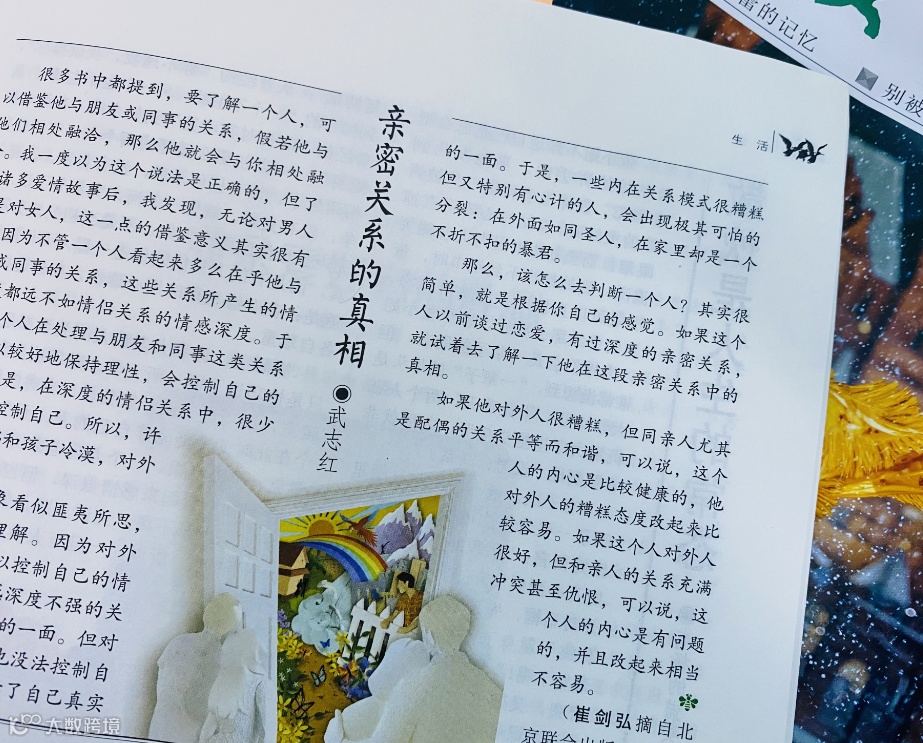 很多书中都提到，要了解一个人，可
以借鉴他与朋友或同事的关系，假若他与
他们相处融洽，那么他就会与你相处融
。我一度以为这个说法是正确的，但了
诸多爱情故事后，我发现，无论对男人
是对女人，这一点的借鉴意义其实很有
因为不管一个人看起来多么在乎他与
或同事的关系，这些关系所产生的情
都远不如情侣关系的情感深度。于
个人在处理与朋友和同事这类关系
以较好地保持理性，会控制自己的
是，在深度的情侣关系中，很少
控制自己。所以，许
和孩子冷漠，对外
象看似匪夷所思，
理解。因为对外
以控制自己的情
深度不强的关
的一面。但对
也没法控制自
了自己真实
亲密关系的真相
◉武志红
生活
的一面。于是，一些内在关系模式很糟糕
但又特别有心计的人，会出现极其可怕的
分裂：在外面如同圣人，在家里却是一个
不折不扣的暴君。
那么，该怎么去判断一个人？其实很
简单，就是根据你自己的感觉。如果这个
人以前谈过恋爱，有过深度的亲密关系，
就试着去了解一下他在这段亲密关系中的
真相。
如果他对外人很糟糕，但同亲人尤其
是配偶的关系平等而和谐，可以说，这个
人的内心是比较健康的，他
对外人的糟糕态度改起来比
较容易。如果这个人对外人
很好，但和亲人的关系充满
冲突甚至仇恨，可以说，这
个人的内心是有问题
的，并且改起来相当
不容易。
（崔剑弘摘自北
京联合出版
富的记忆
别被
大数跨境